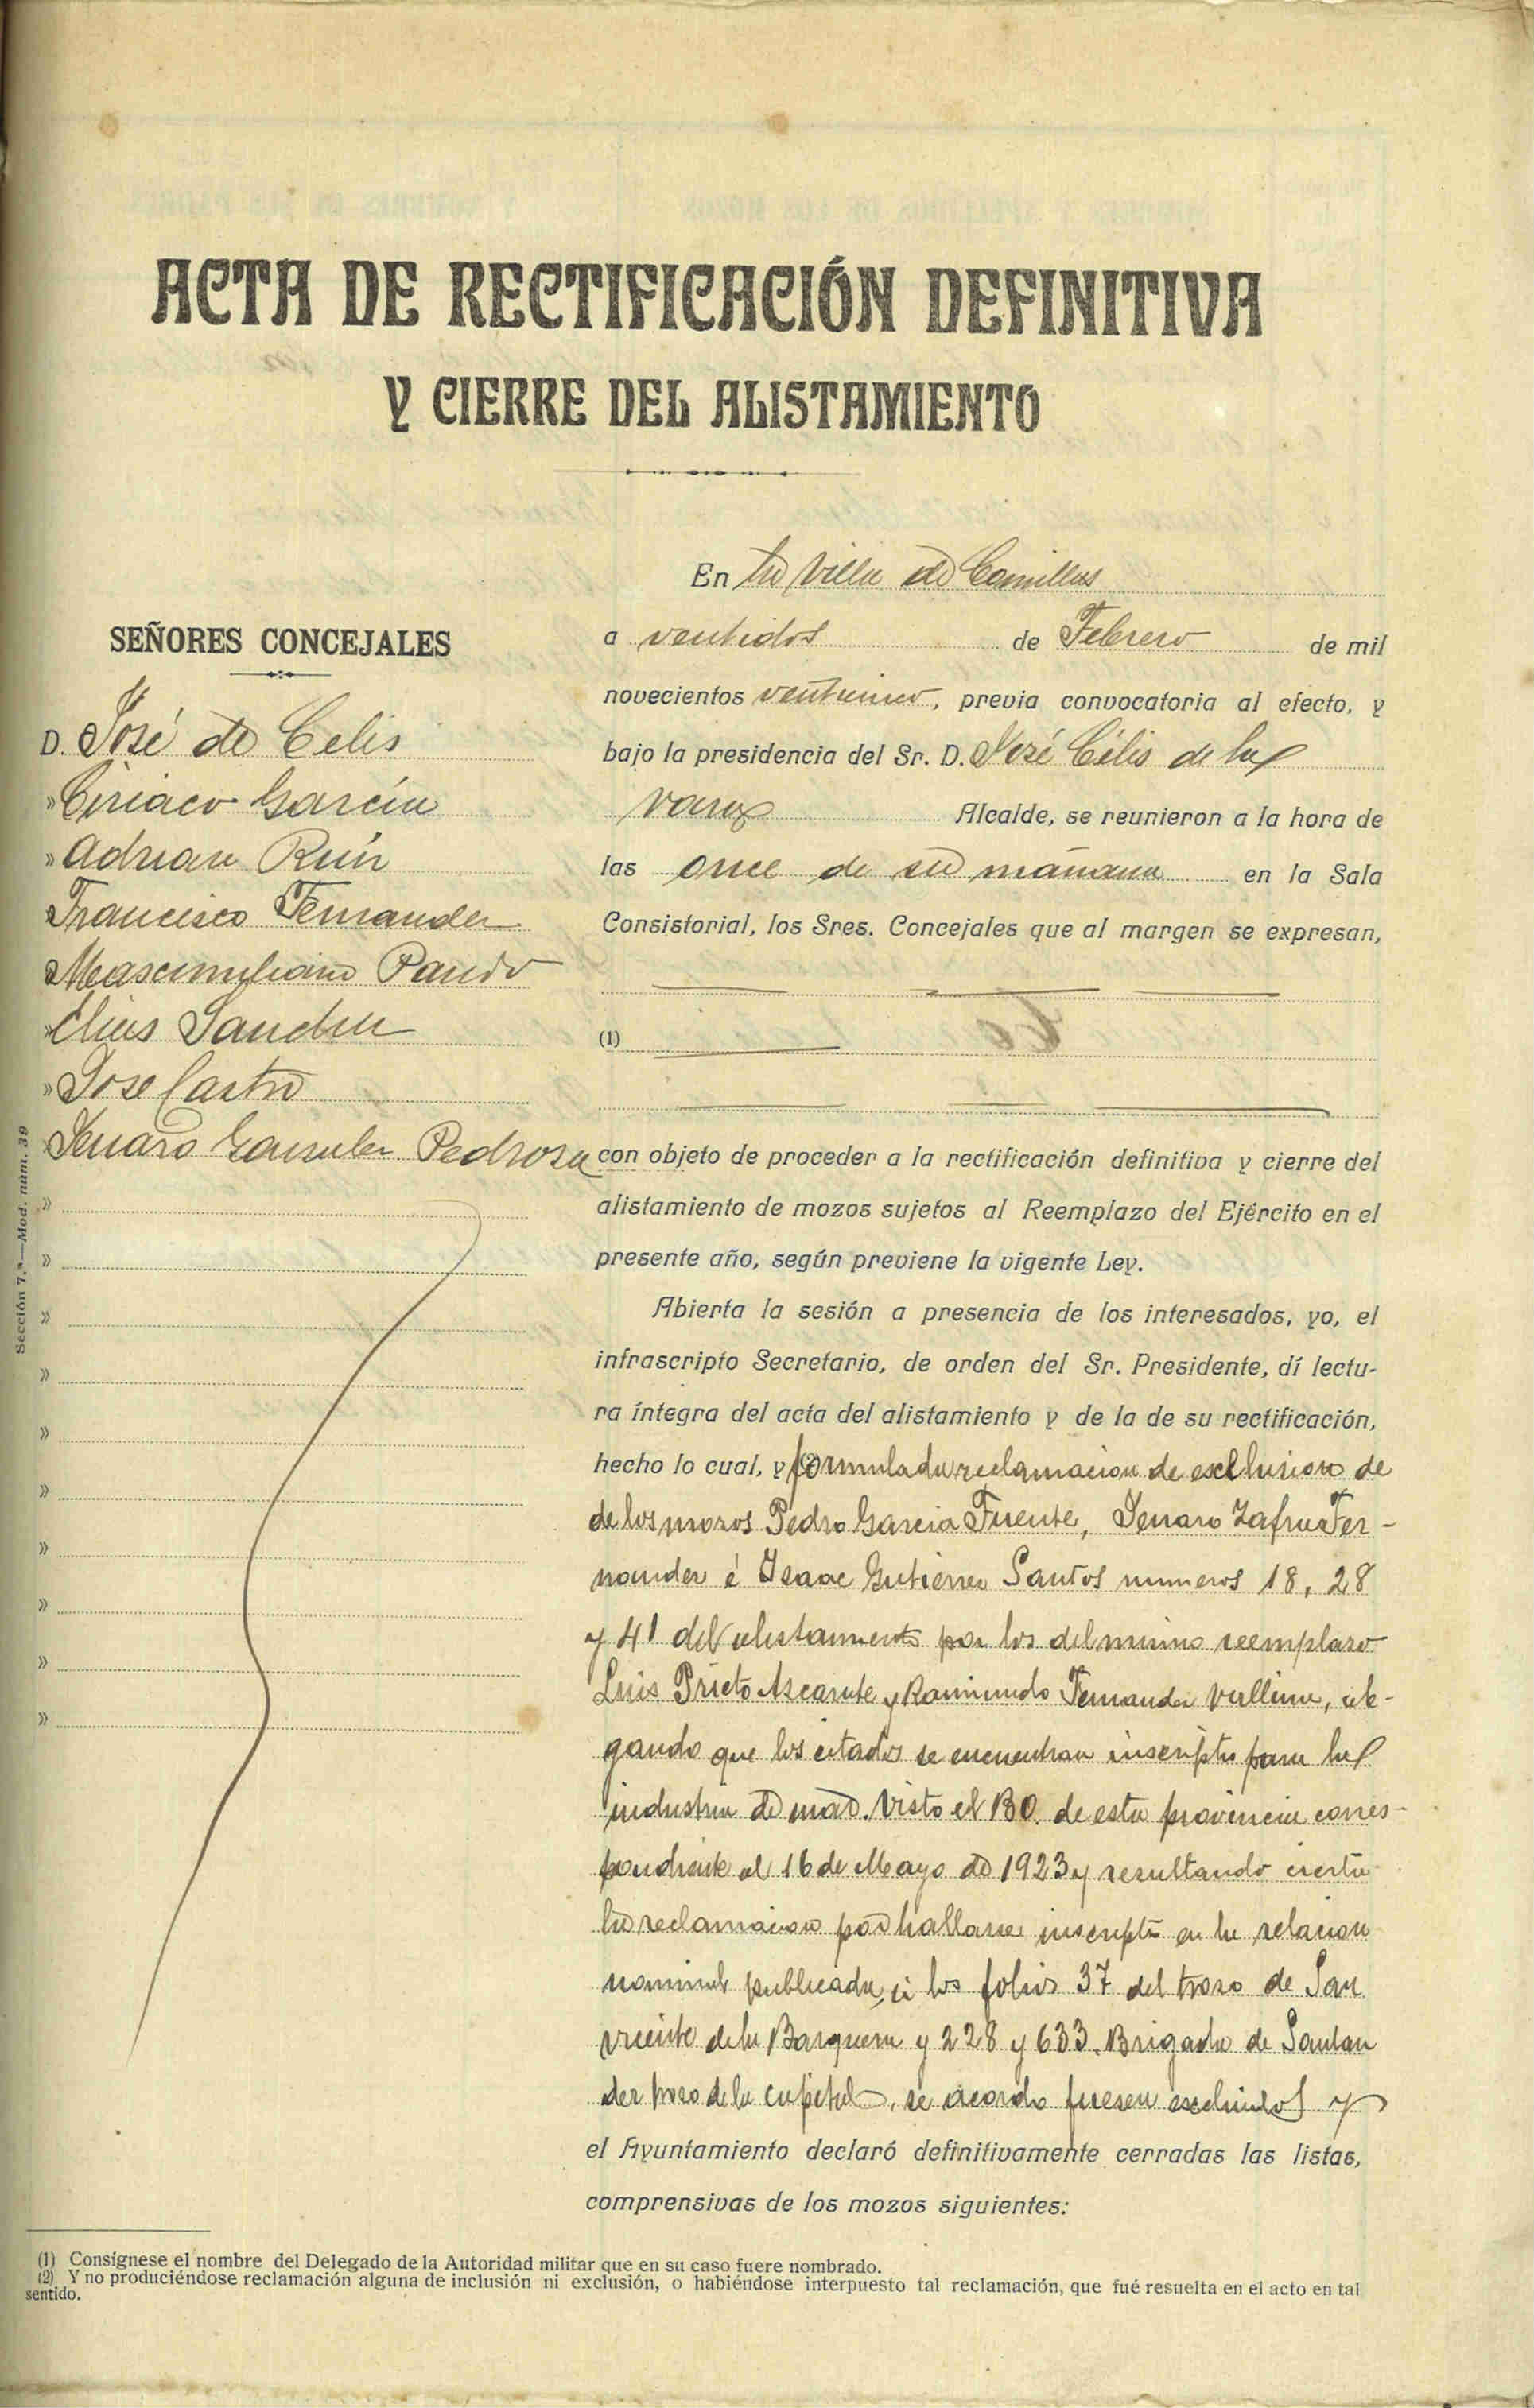 ACTA DE RECTIFICACIÓN DEFINITIVA
Y CIERRE DEL ALISTAMIENTO
SEÑORES CONCEJALES
D. José de Celis
» Ciriaco Garcia
» Adrian Ruiz
Francisco Fernandez
Mascimiliano Pando
» Elias Sanchez
» Jose Castro
» Jenaro Gonzalez Pedrosa
»
»
»
»
»
»
»
»
»
»
Sección 7.ª—Mod. núm. 39
En la Villa de Comillas
a ventidos de Febrero de mil
novecientos venticinco, previa convocatoria al efecto, y
bajo la presidencia del Sr. D. José Célis de la
Vara Alcalde, se reunieron a la hora de
las once de su mañana en la Sala
Consistorial, los Sres. Concejales que al margen se expresan,
(1)
con objeto de proceder a la rectificación definitiva y cierre del
alistamiento de mozos sujetos al Reemplazo del Ejército en el
presente año, según previene la vigente Ley.
Abierta la sesión a presencia de los interesados, yo, el
infrascripto Secretario, de orden del Sr. Presidente, dí lectu-
ra íntegra del acta del alistamiento y de la de su rectificación,
hecho lo cual, y (2) formulada reclamacion de esclusion de
de los mozos Pedro Garcia Fuente, Jenaro Zafra Fer-
nandez é Isaac Gutierrez Santos numeros 18, 28
y 41 del alistamiento por los del mismo reemplazo
Luis Prieto Ascarate y Raimundo Fernandez Vallina, ale-
gando que los citados se encuentran inscriptos para la
industria de mar. Visto el B.O. de esta provincia corres-
pondiente al 16 de Mayo de 1923 y resultando cierta
la reclamacion por hallarse inscriptos en la relacion
nominal publicada, á los folios 37 del trozo de San
Vicente de la Barquera y 228 y 633. Brigada de Santan
der trozo de la capital, se acordo fuesen escluidos y
el Ayuntamiento declaró definitivamente cerradas las listas,
comprensivas de los mozos siguientes:
(1) Consígnese el nombre del Delegado de la Autoridad militar que en su caso fuere nombrado.
(2) Y no produciéndose reclamación alguna de inclusión ni exclusión, o habiéndose interpuesto tal reclamación, que fué resuelta en el acto en tal
sentido.